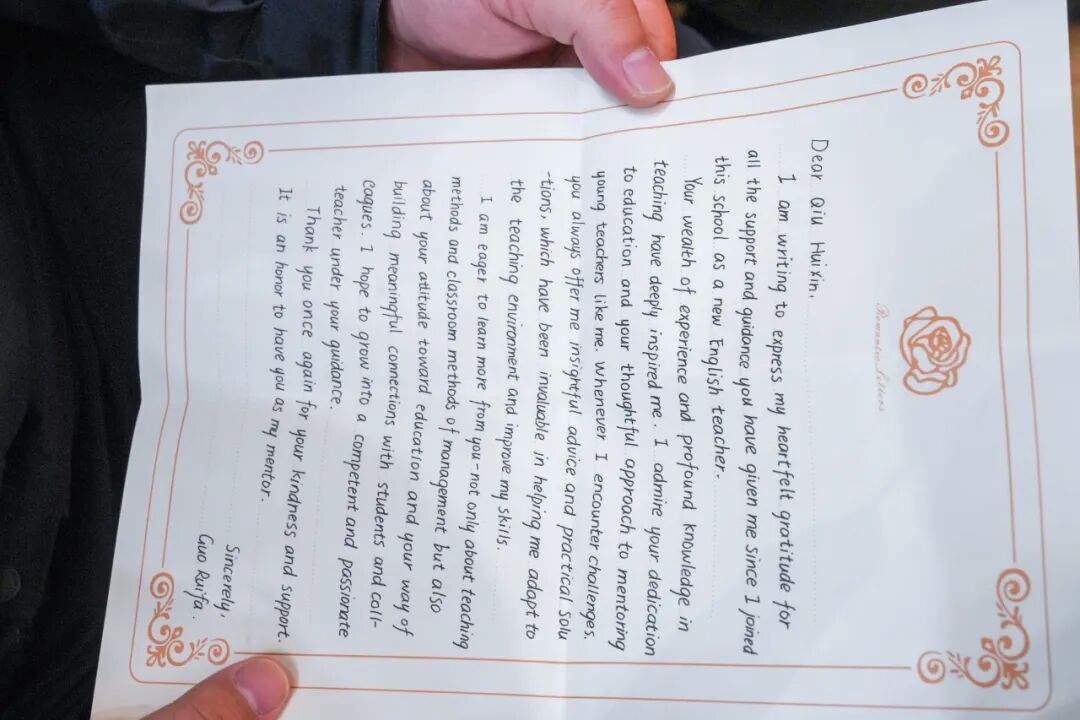 Romantic Letters
Dear Qiu Huixin,
I am writing to express my heartfelt gratitude for
all the support and guidance you have given me since I joined
this school as a new English teacher.
Your wealth of experience and profound knowledge in
teaching have deeply inspired me. I admire your dedication
to education and your thoughtful approach to mentoring
young teachers like me. Whenever I encounter challenges,
you always offer me insightful advice and practical solu
-tions, which have been invaluable in helping me adapt to
the teaching environment and improve my skills.
I am eager to learn more from you-not only about teaching
methods and classroom methods of management but also
about your attitude toward education and your way of
building meaningful connections with students and coll-
eagues. I hope to grow into a competent and passionate
teacher under your guidance.
Thank you once again for your kindness and support.
It is an honor to have you as my mentor.
Sincerely,
Guo Ruifa.